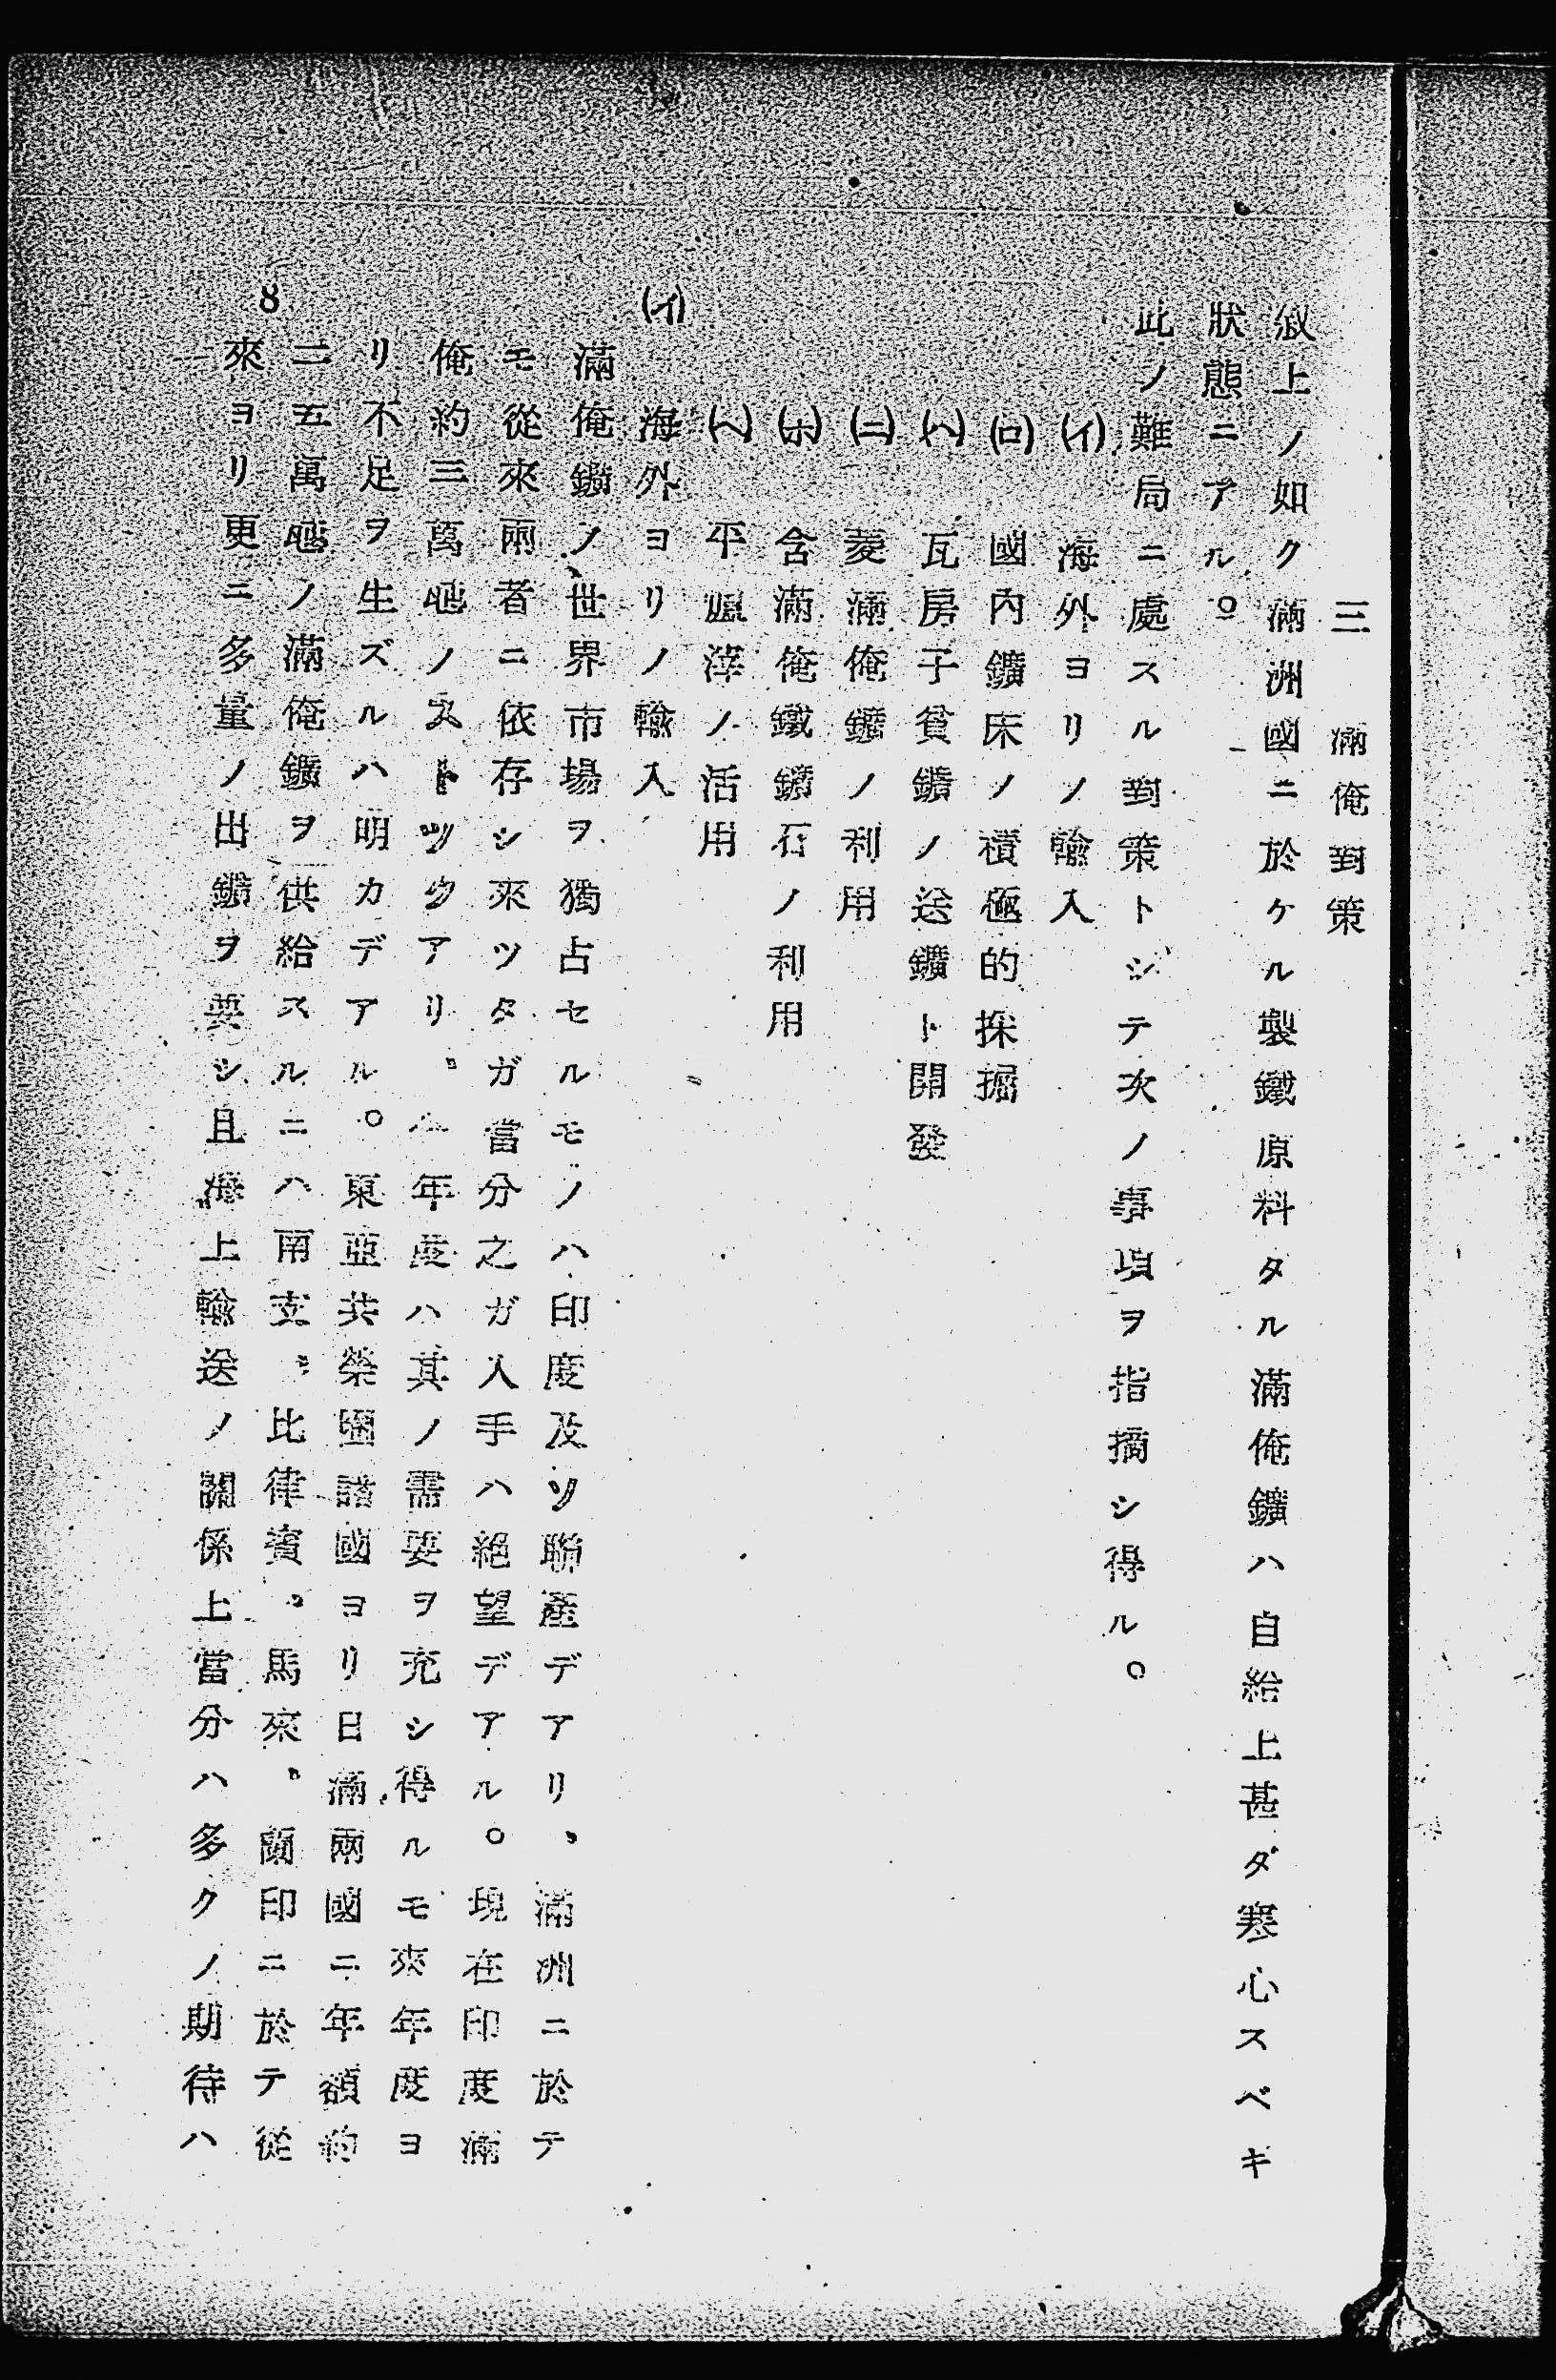 三 滿俺對策
敍上ノ如ク滿洲國ニ於ケル製鐵原料タル滿俺鑛ハ自給上甚ダ寒心スベキ
狀態ニアル。
此ノ難局ニ處スル對策トシテ次ノ事項ヲ指摘シ得ル。
(イ) 海外ヨリノ輸入
(ロ) 國內鑛床ノ積極的採掘
(ハ) 瓦房子貧鑛ノ送鑛ト開發
(ニ) 菱滿俺鑛ノ利用
(ホ) 含滿俺鐵鑛石ノ利用
(ヘ) 平爐滓ノ活用
(イ) 海外ヨリノ輸入
滿俺鑛ノ世界市場ヲ獨占セルモノハ印度及ソ聯產デアリ、滿洲ニ於テ
モ從來兩者ニ依存シ來ツタガ當分之ガ入手ハ絕望デアル。現在印度滿
俺約三萬瓲ノストツクアリ、八年度ハ其ノ需要ヲ充シ得ルモ來年度ヨ
リ不足ヲ生ズルハ明カデアル。東亞共榮圈諸國ヨリ日滿兩國ニ年額約
二五萬瓲ノ滿俺鑛ヲ供給スルニハ南支、比律賓、馬來、蘭印ニ於テ從
來ヨリ更ニ多量ノ出鑛ヲ要シ且海上輸送ノ關係上當分ハ多クノ期待ハ
8